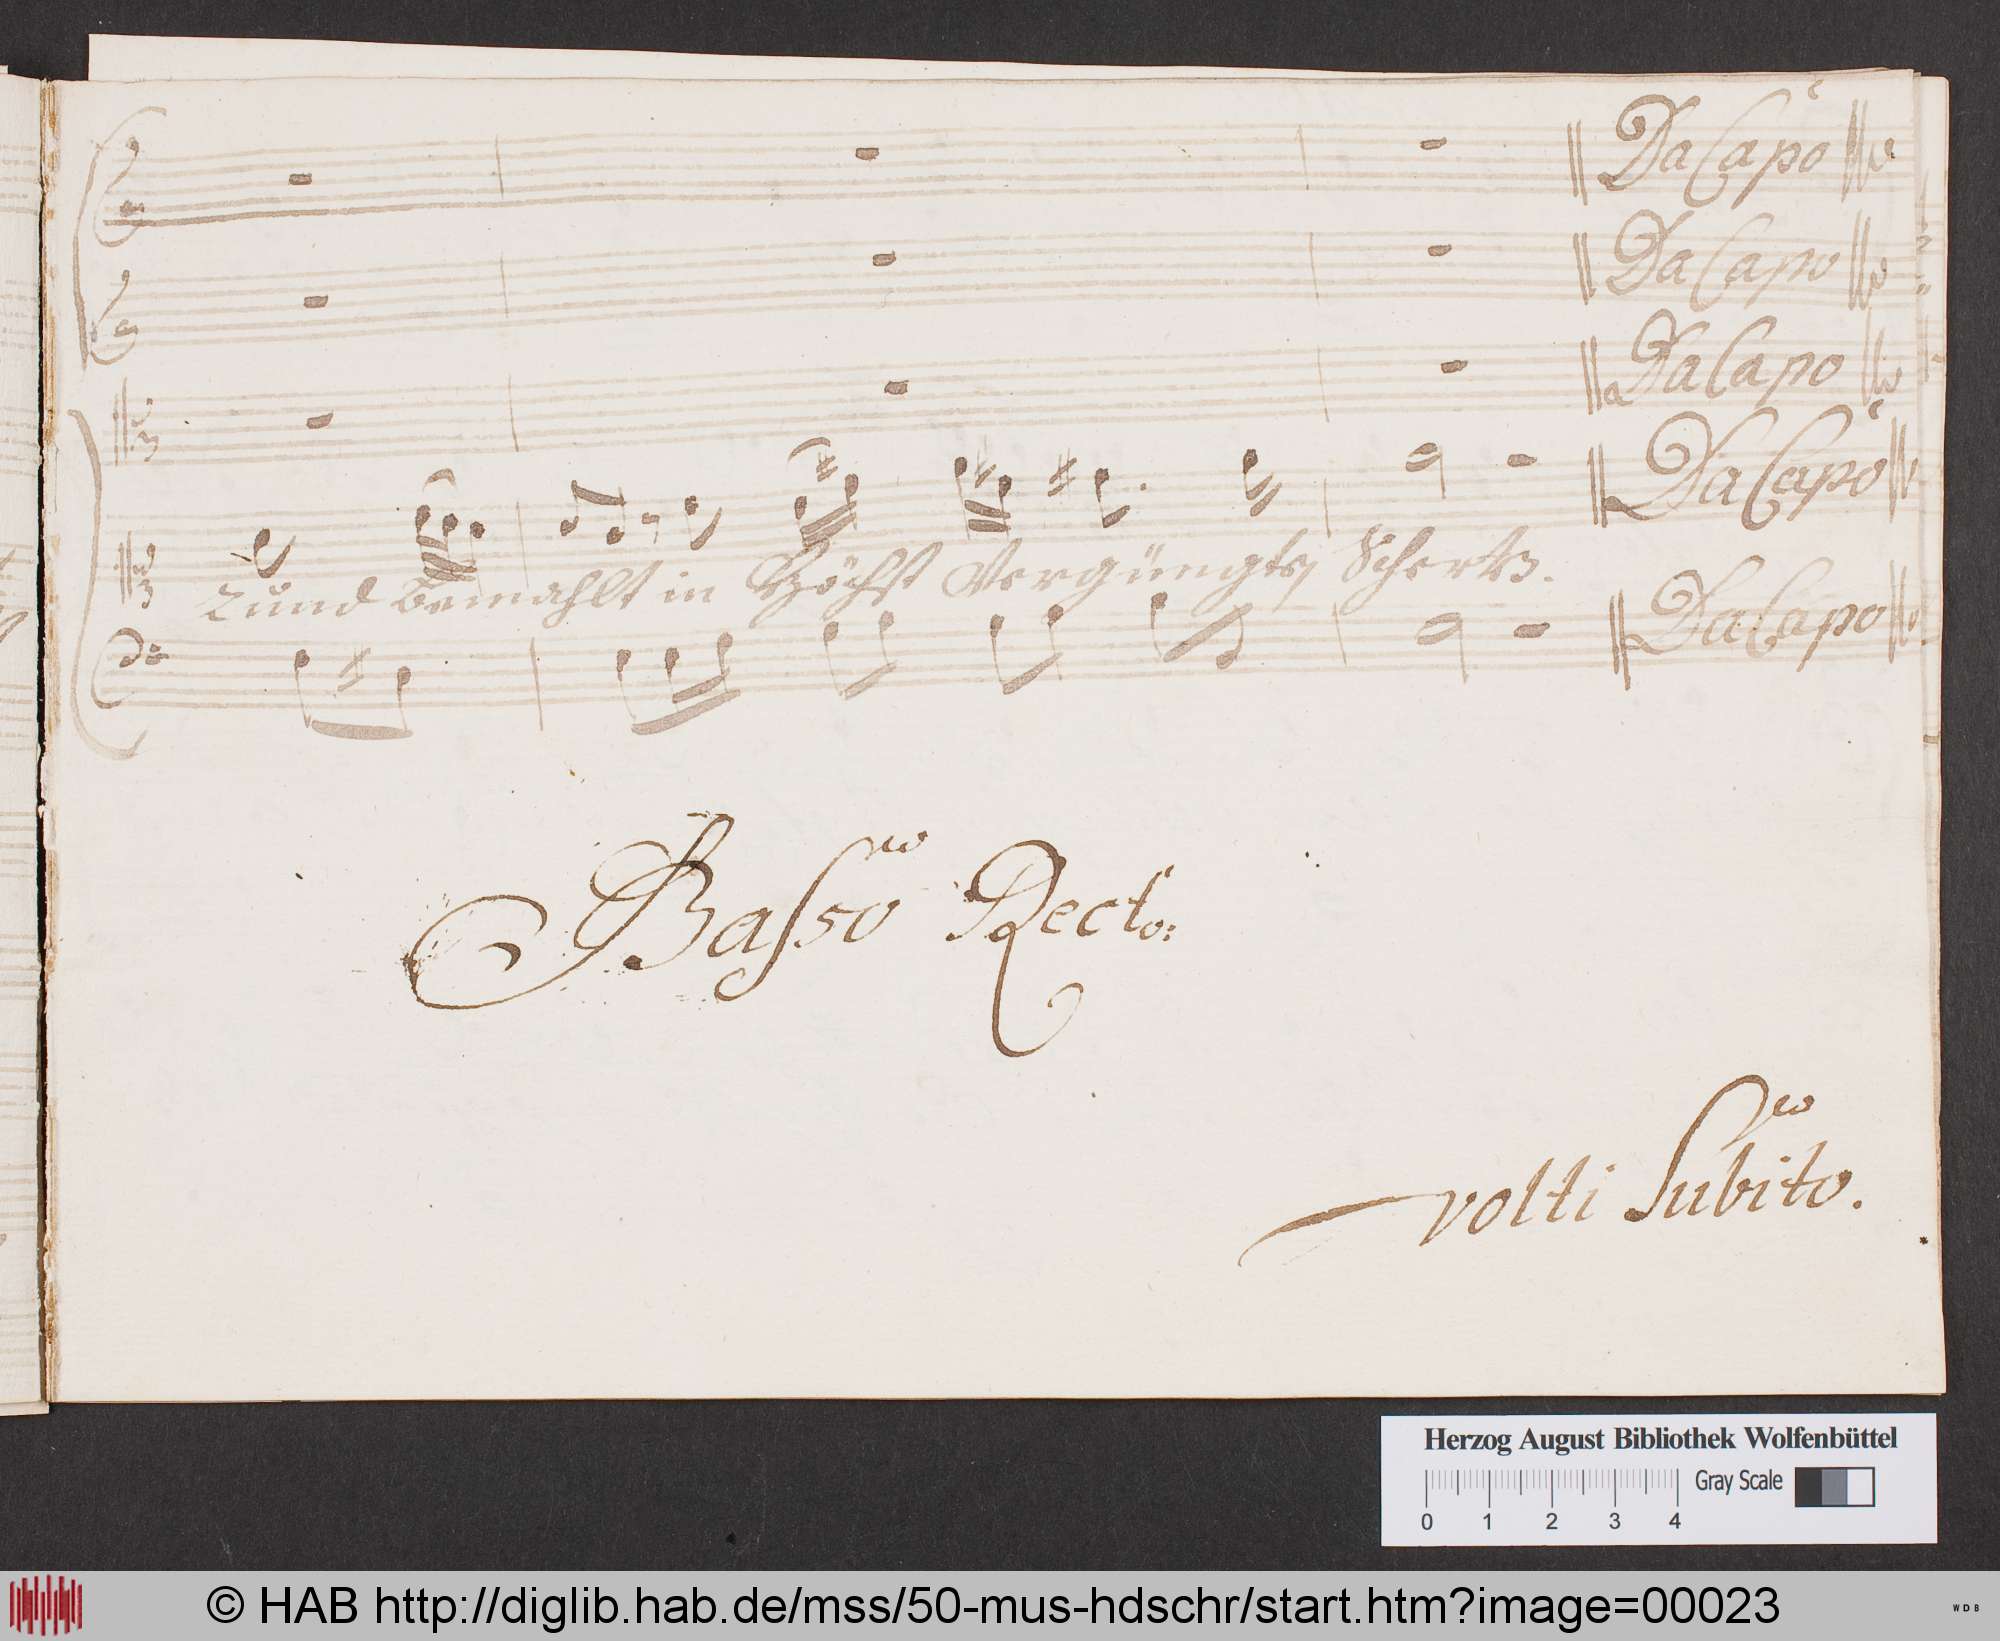 Da Capo
Da Capo
Da Capo
Da Capo
und bemahlt in Höchst Vergüngtes Schertz.
Da Capo
Basso Rect:
volti Subito.
Herzog August Bibliothek Wolfenbüttel
Gray Scale
0 1 2 3 4
© HAB http://diglib.hab.de/mss/50-mus-hdschr/start.htm?image=00023
WDB